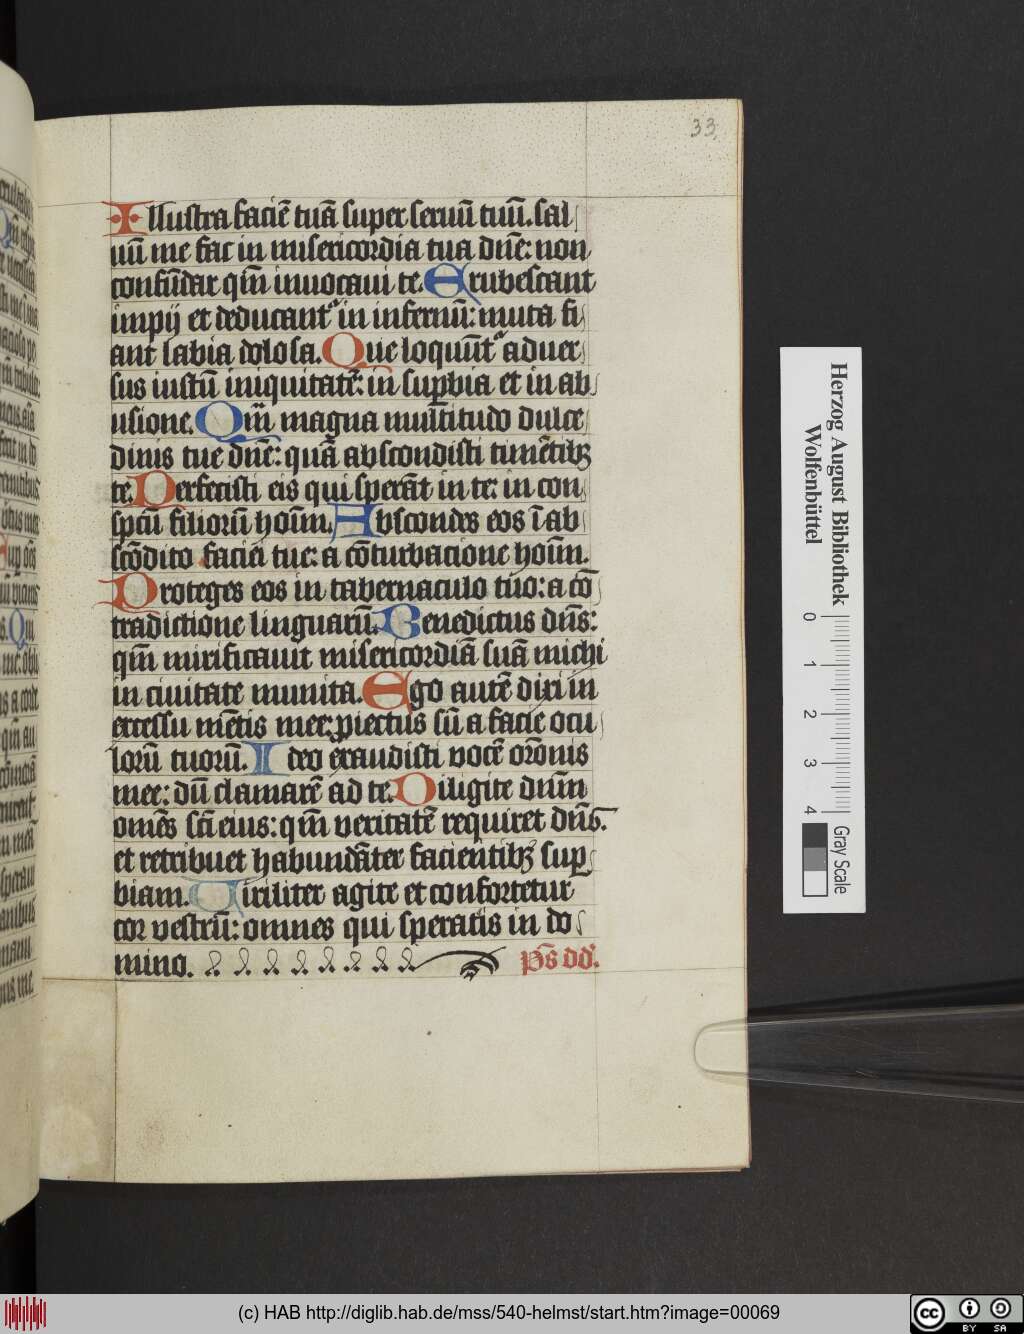 33
Illustra faciē tuā super seruū tuū. sal
uū me fac in misericordia tua dn̄e: non
confūdar qm̄ inuocaui te. Erubescant
impij et deducant᷑ in infernū: muta fi
ant labia dolosa. Que loquūt᷑ aduer
sus iustū iniquitatē: in suꝑbia et in ab
usione. Qm̄ magna mul̄titudo dulce
dinis tue dn̄e: quā abscondisti timētibꝫ
te. Perfecisti eis qui sperāt in te: in con
spc̄u filiorū hoīm. Abscondes eos ī ab
scōdito faciei tue: a cōturbacione hoīm.
Proteges eos in tabernaculo tuo: a cō
tradictione linguarū. Benedictus dn̄s:
qm̄ mirificauit misericordiā suā michi
in ciuitate munita. Ego autē dixi in
excessu mētis mee: ꝓiectus sū a facie ocu
lorū tuorū. Ideo exaudisti vocē orōnis
mee: dū clamarē ad te. Diligite dn̄m
omēs scī eius: qm̄ veritatē requiret dn̄s.
et retribuet habundāter facientibꝫ suꝑ
biam. Uiriliter agite et confortetur
cor vestrū: omnes qui speratis in do
mino. Ps̄ dd.
Herzog August Bibliothek
Wolfenbüttel
0 1 2 3 4
Gray Scale
(c) HAB http://diglib.hab.de/mss/540-helmst/start.htm?image=00069
cc BY SA